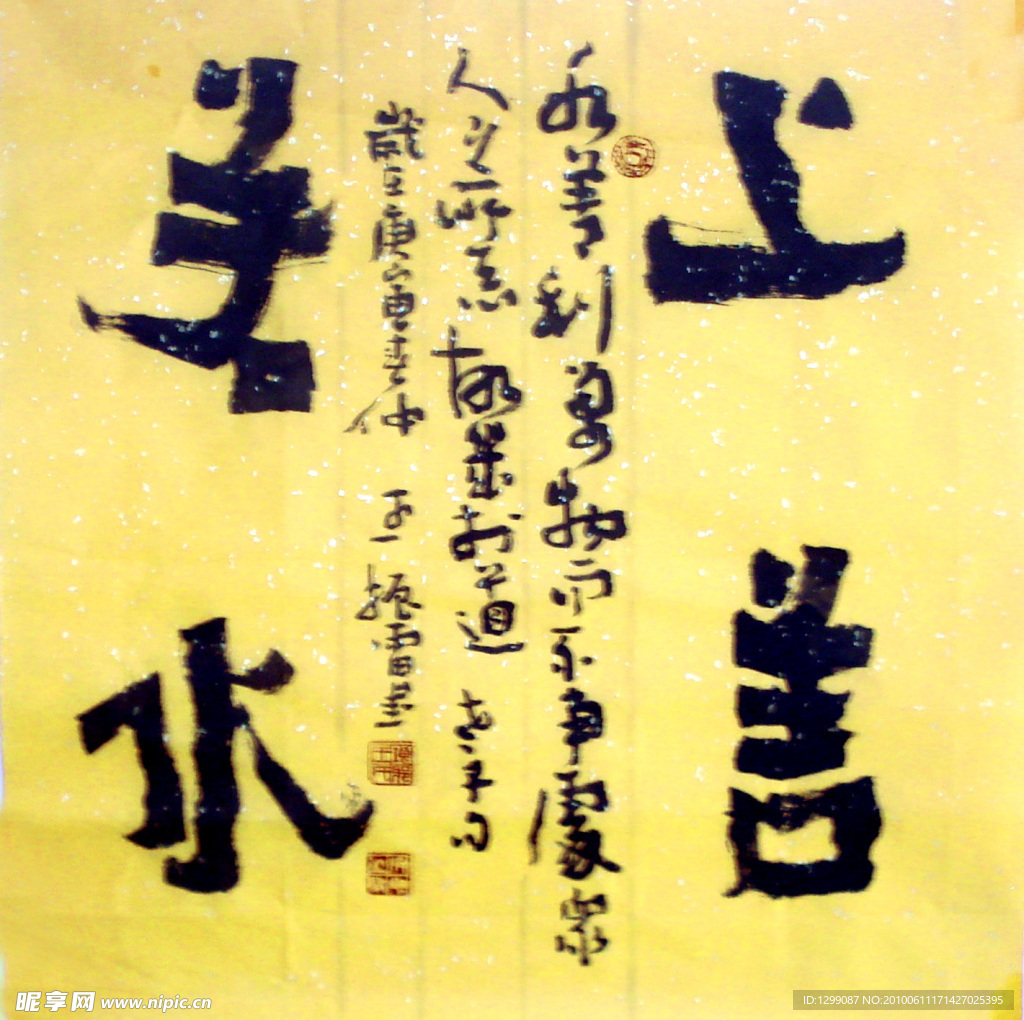 上善
若水
水善利萬物而不爭處眾
人之所惡故幾於道 老子句
歲在庚寅春仲 王振雷書
昵享网 www.nipic.cn
ID:1299087 NO:20100611171427025395